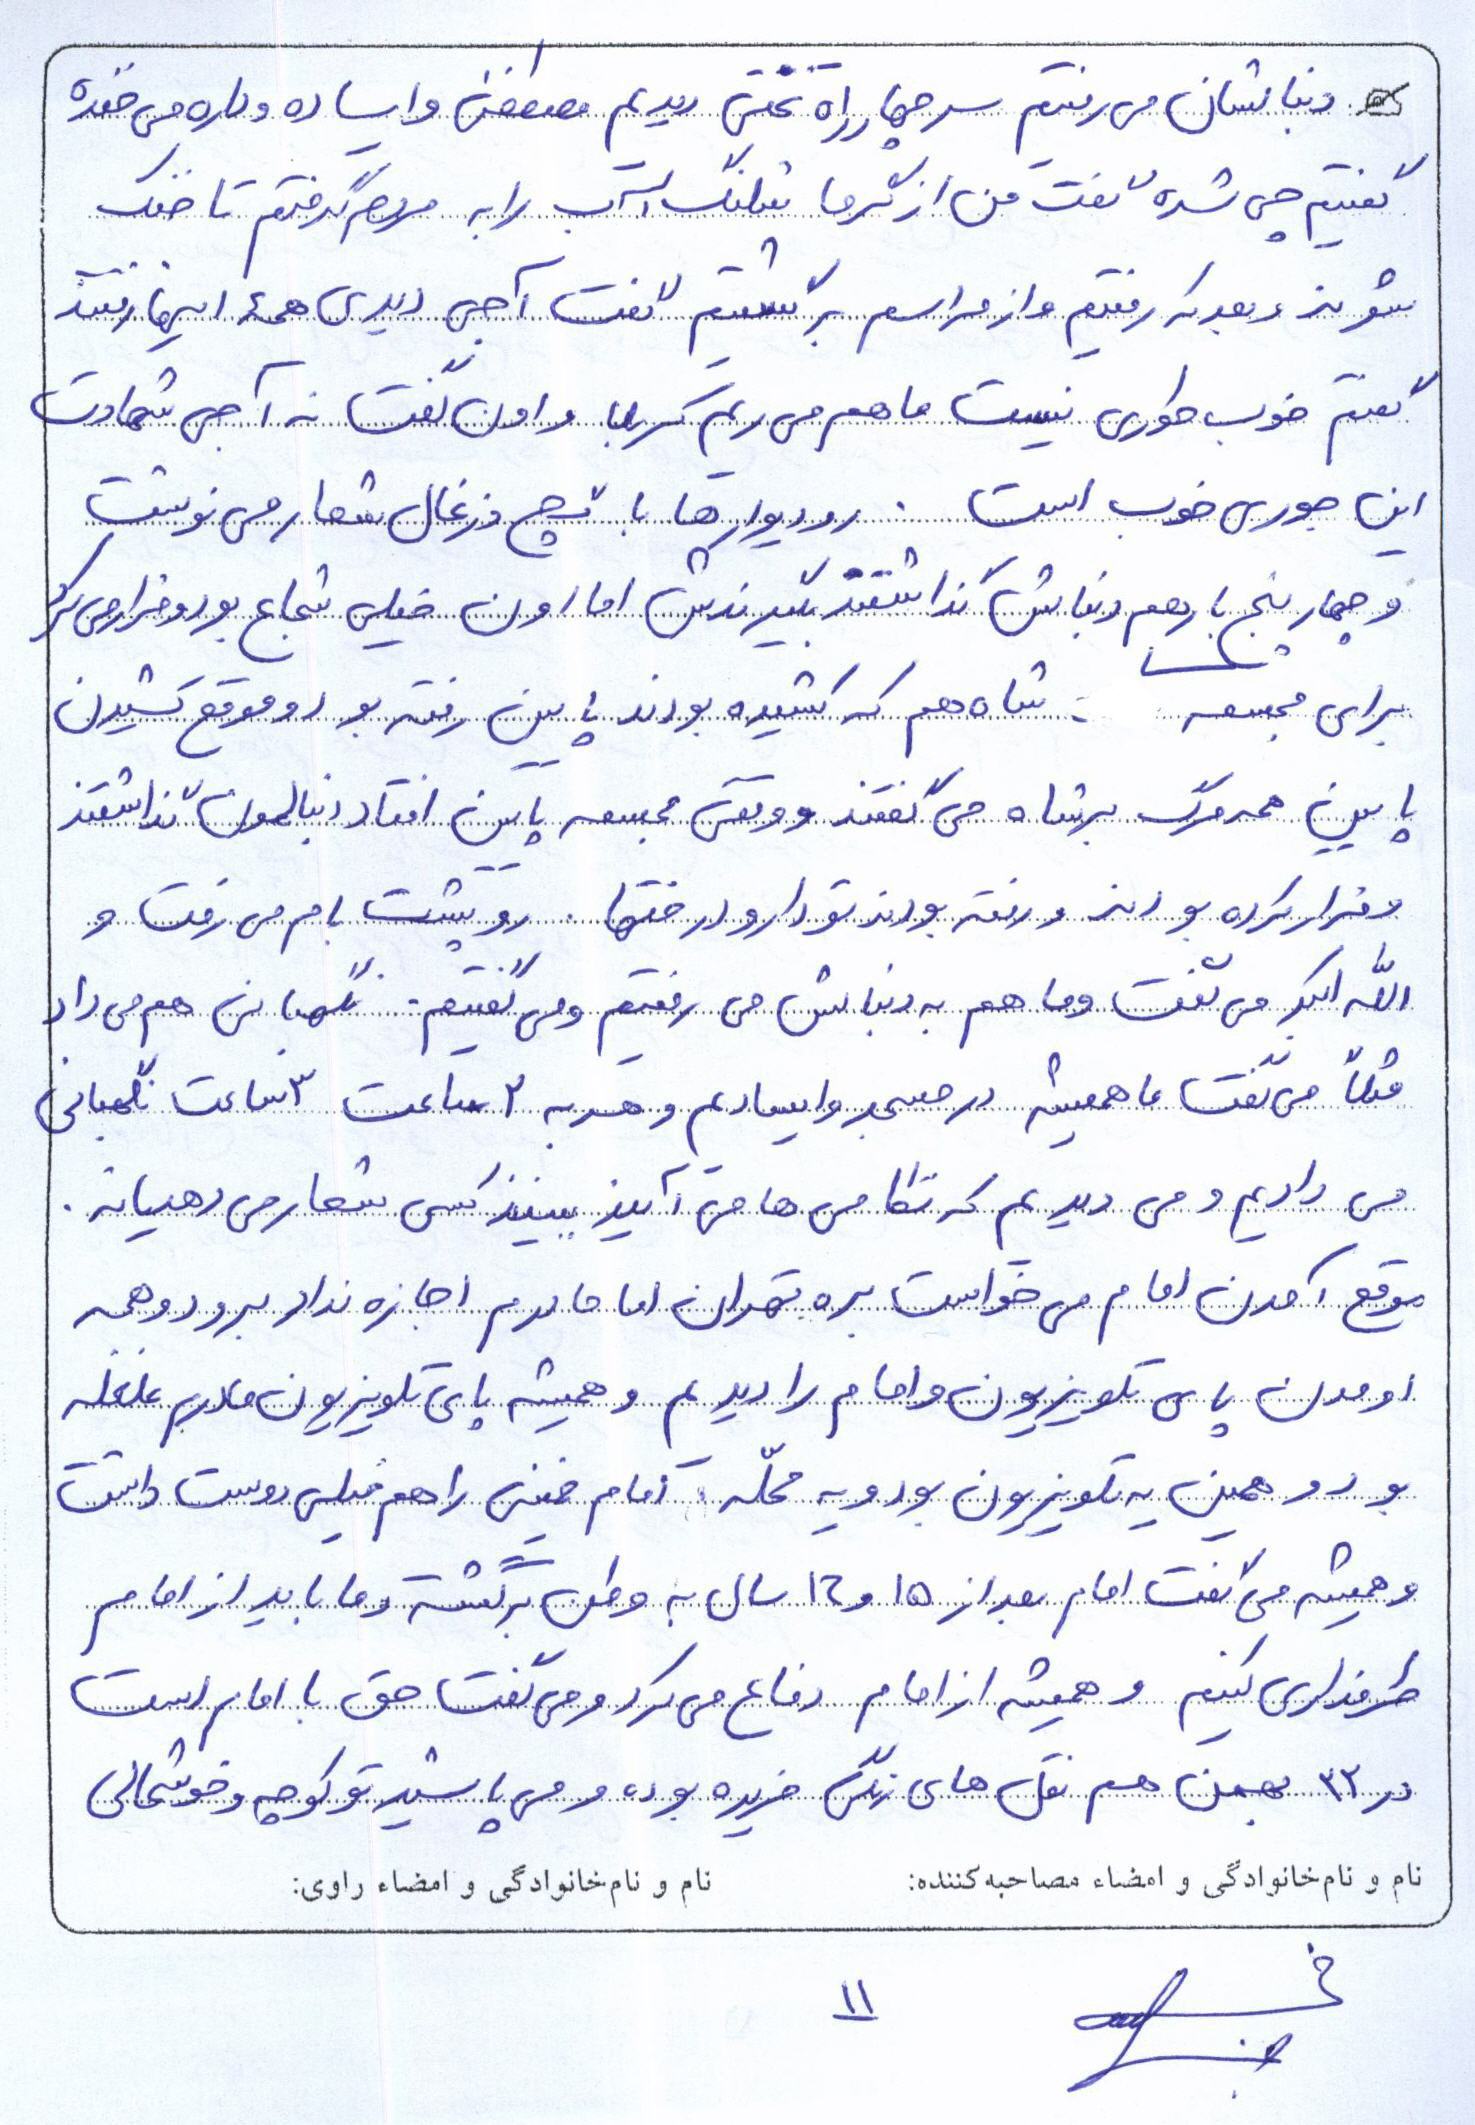 دنبالشان می رفتیم سر چهارراه تختی دیدیم مصطفی وایساده و داره می خنده
گفتیم چی شده گفت من از گرما شلنگ آب را به مردم گرفتم تا خنک
شوند و بعد که رفتیم و از مراسم برگشتیم گفت آجی دیدی همه اینها رفتند
گفتم خوب طوری نیست ما هم می ریم کربلا و اون گفت نه آجی شهادت
این جوری خوب است . رو دیوارها با گچ و زغال شعار می نوشت
و چهار پنج بار هم دنبالش گذاشتند بگیرندش اما اون خیلی شجاع بود و فرار می کرد
برای مجسمه شاه هم که کشیده بودند پایین رفته بود و موقع کشیدن
پایین همه مرگ بر شاه می گفتند و وقتی مجسمه پایین افتاد دنبالمون گذاشتند
و فرار کرده بودند و رفته بودند تو دار و درختها . رو پشت بام می رفت و
الله اکبر می گفت و ما هم به دنبالش می رفتیم و می گفتیم . نگهبانی هم می داد
مثلاً می گفت ما همیشه در مسجد وایسادیم و هر به ۲ ساعت ۳ ساعت نگهبانی
می دادیم و می دیدیم که نظامی ها می آیند ببینند کسی شعار می ده یا نه .
موقع آمدن امام می خواست بره تهران اما مادرم اجازه نداد برود و همه
اومدن پای تلویزیون و امام را دیدیم و همیشه پای تلویزیون مادرم غلغله
بود و همین یه تلویزیون بود و یه محلّه . امام خمینی را هم خیلی دوست داشت
و همیشه می گفت امام بعد از ۱۵ و ۱۶ سال به وطن برگشته و ما باید از امام
طرفداری کنیم و همیشه از امام دفاع می کرد و می گفت حق با امام است
در ۲۲ بهمن هم نقل های رنگی خریده بوده و می پاشید تو کوچه و خوشحالی
نام و نام خانوادگی و امضاء مصاحبه کننده: نام و نام خانوادگی و امضاء راوی:
۱۱